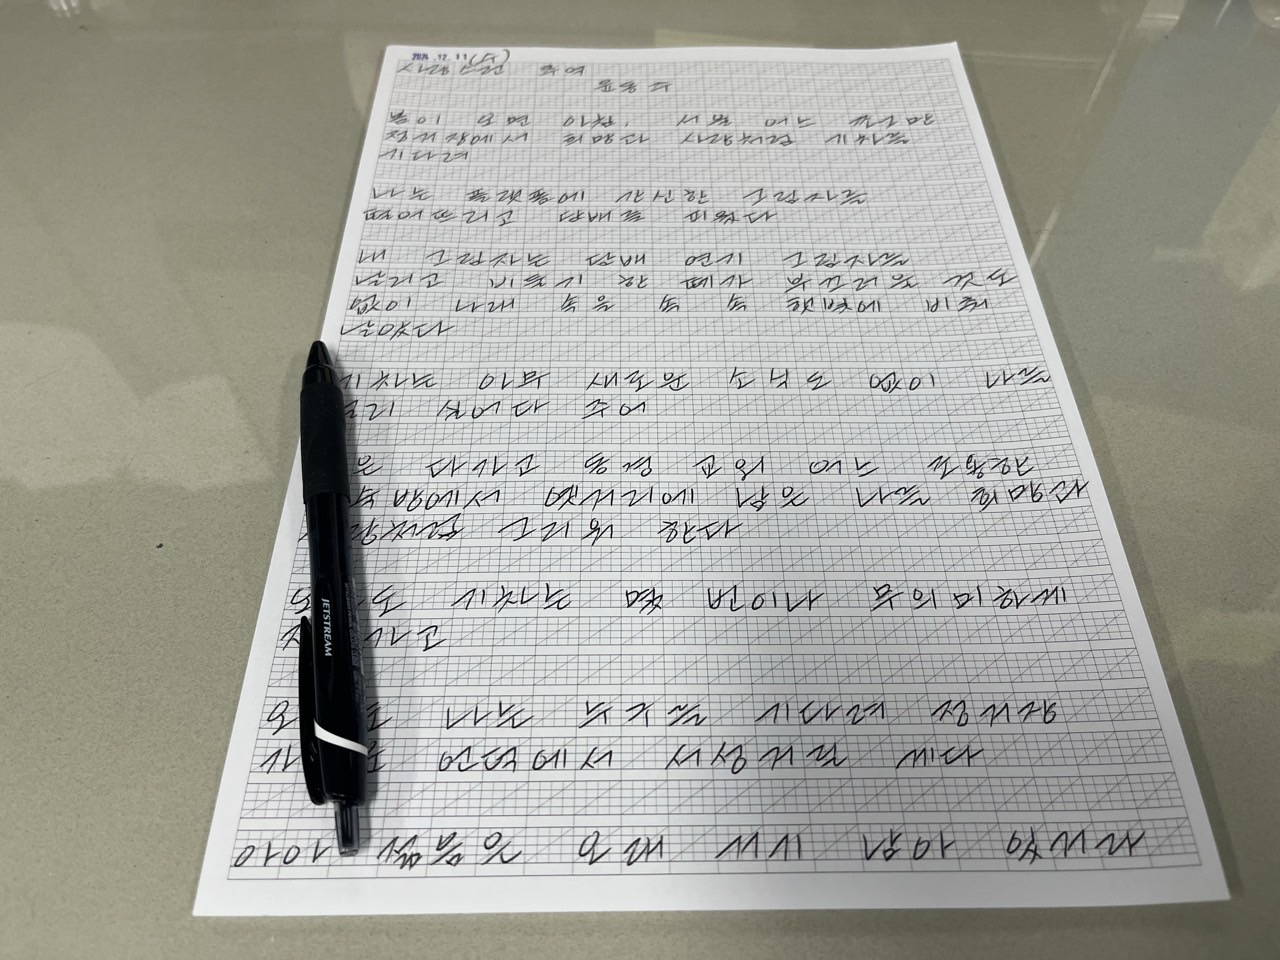 2024.12.11(수)
사랑스런 추억
윤동주
봄이 오면 아침, 서울 어느 쪼그만
정거장에서 희망과 사랑처럼 기차를
기다려
나는 플랫폼에 간신한 그림자를
떨어뜨리고 담배를 피웠다
내 그림자는 담배 연기 그림자를
날리고 비둘기 한 떼가 부끄러울 것도
없이 나래 속을 속 속 햇빛에 비춰
날았다
기차는 아무 새로운 소식도 없이 나를
실어다 주어
다가고 동경 교외 어느 조용한
옛거리에 남은 나를 희망과
그리워 한다
기차는 몇 번이나 무의미하게
나는 누구를 기다려 정거장
언덕에서 서성거릴 게다
아아 젊음은 오래 거기 남아 있거라
JETSTREAM